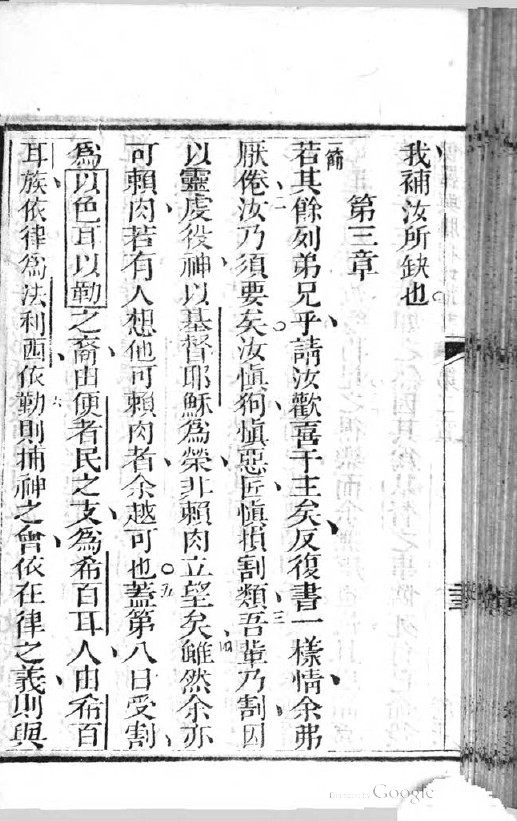 我補汝所缺也
第三章
一節
若其餘列弟兄乎請汝歡喜于主矣反復書一樣情余弗
厭倦汝乃須要矣汝慎狗慎惡匠慎損割類吾輩乃割因
二 三 四
以靈虔役神以基督耶穌為榮非賴肉立望矣雖然余亦
可賴肉若有人想他可賴肉者余越可也蓋第八日受割
五
為以色耳以勒之裔由便者民之支為希百耳人由希百
耳族依律為法利西依勤則捕神之會依在律之義則與
六
Google